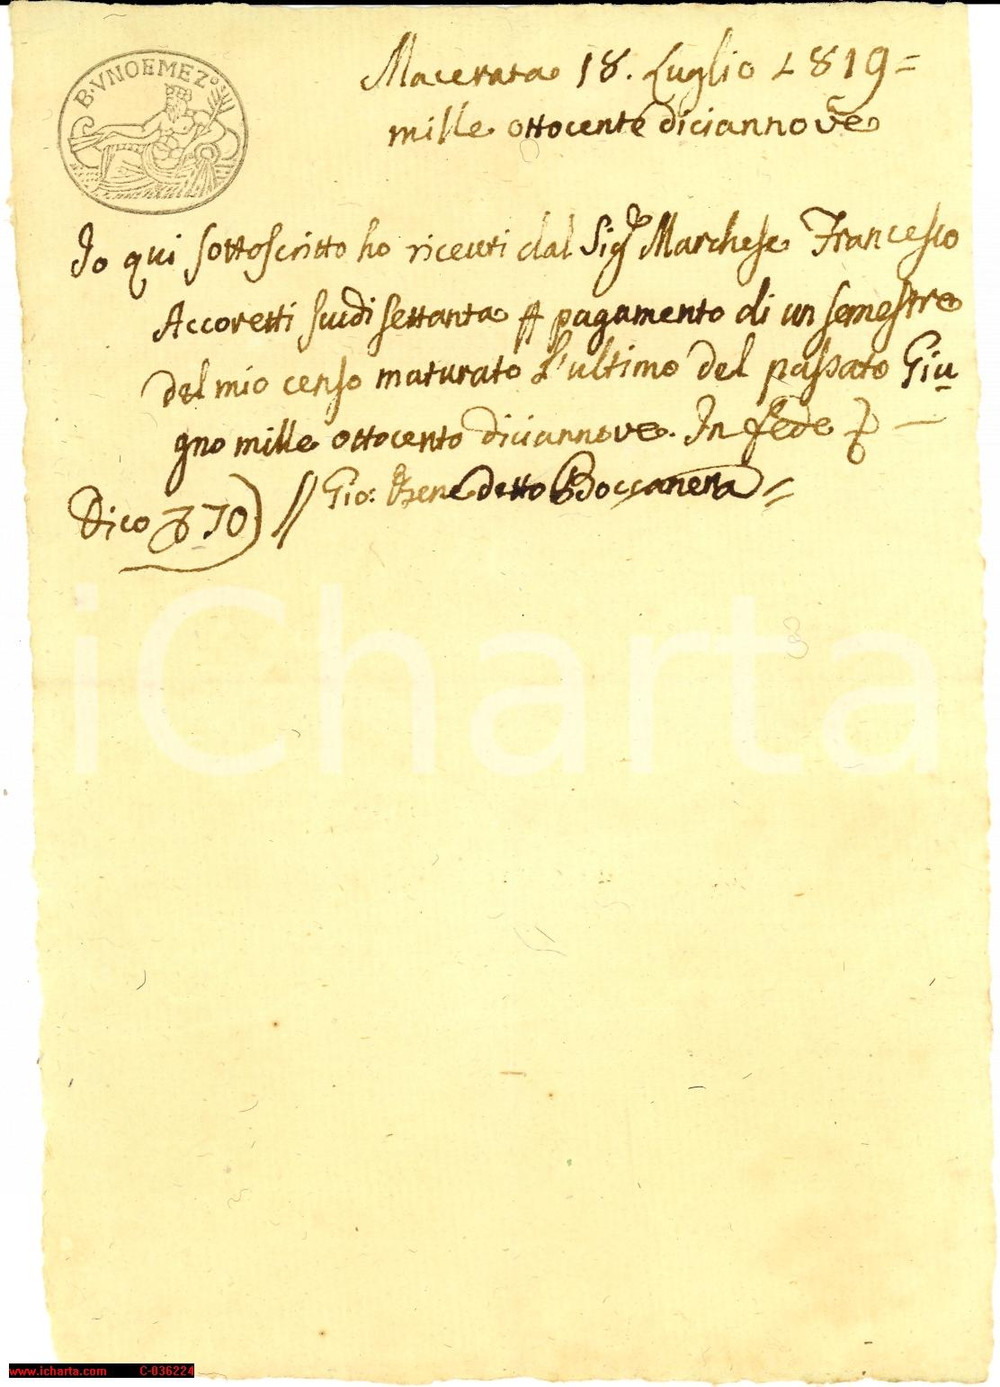 B. VNOEMEZº
Macerata 18. Luglio 1819=
mille ottocento diciannove
Io qui sottoscritto ho riceuti dal Sig.r Marchese Francesco
Accoretti scudi settanta pagamento di un semestre
del mio censo maturato l'ultimo del passato Giu
gno mille ottocento diciannove. In fede
Dico 70) // Gio: Benedetto Boccanera =
iCharta
www.icharta.com C-036224